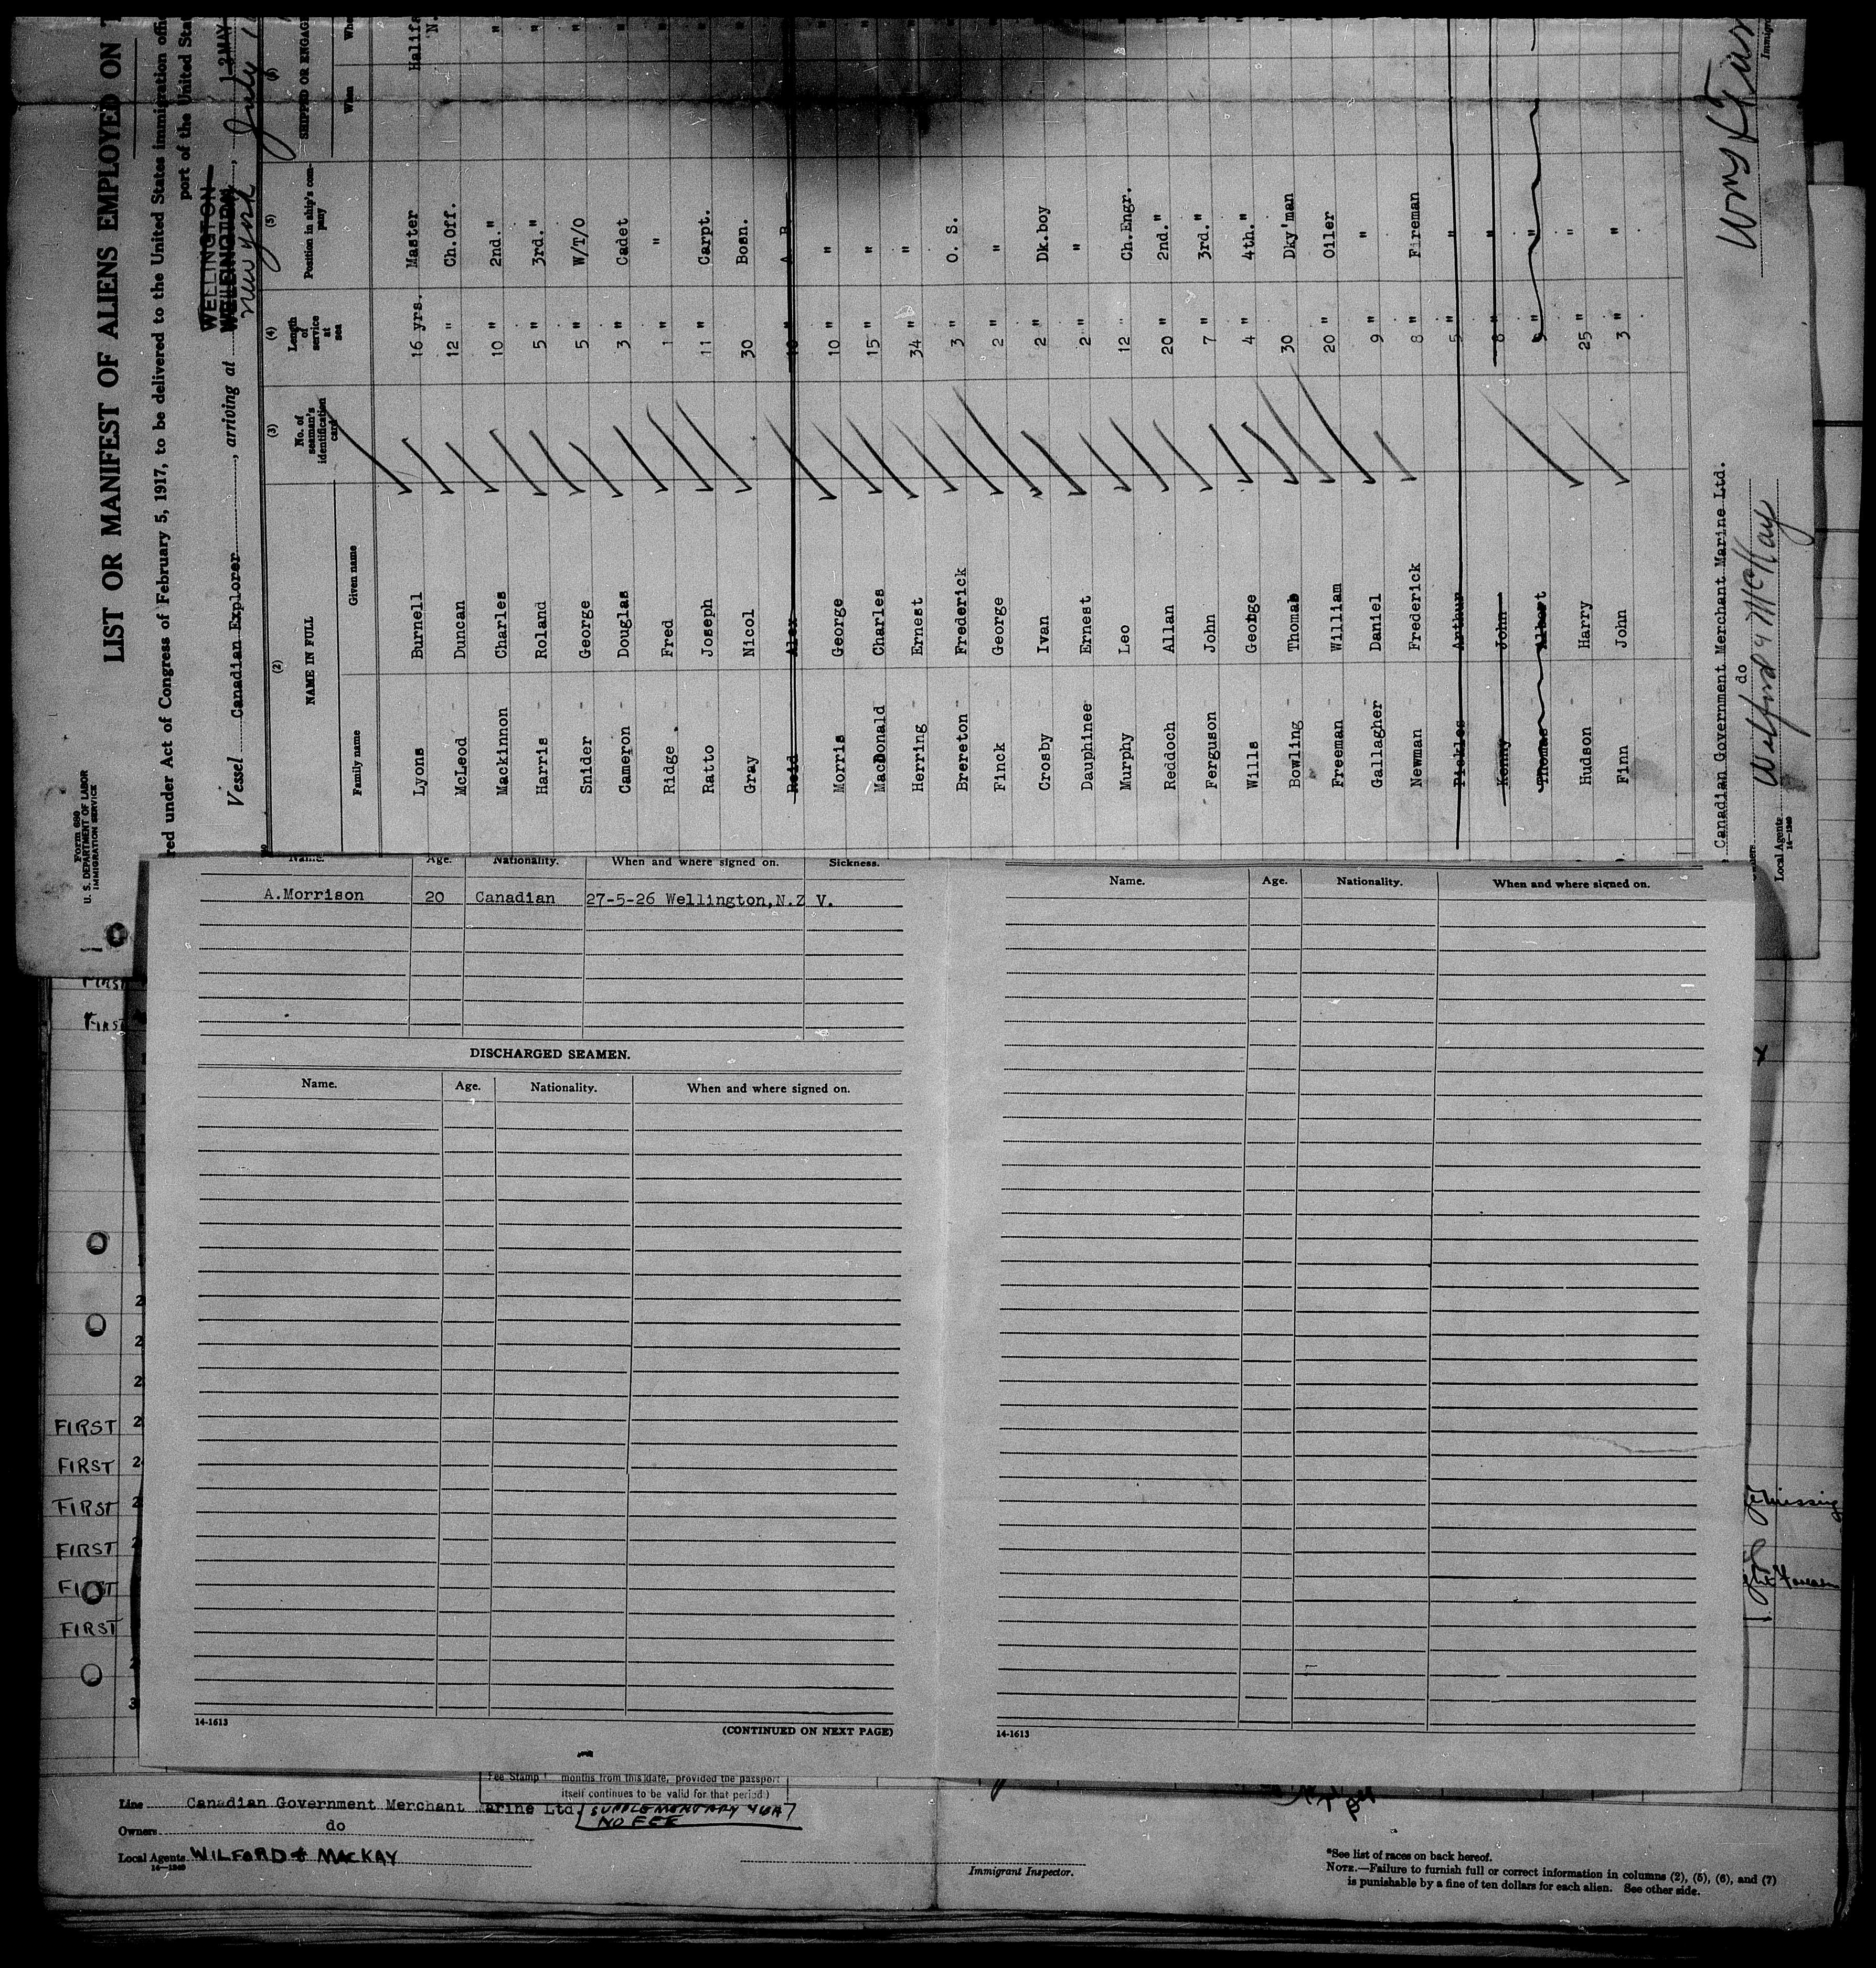 Form 680
U. S. DEPARTMENT OF LABOR
IMMIGRATION SERVICE
LIST OR MANIFEST OF ALIENS EMPLOYED ON
red under Act of Congress of February 5, 1917, to be delivered to the United States immigration
port of the United
WELLINGTON
WELLINGTON
12 MAY
Vessel Canadian Explorer, arriving at New York, July 1
(2) (3) (4) (5) (6)
NAME IN FULL
Family name Given name
No. of seaman's identification card
Length of service at sea
Position in ship's company
SHIPPED OR ENGAGED
When
Lyons Burnell 16 yrs. Master
McLeod Duncan 12 " Ch.Off.
Mackinnon Charles 10 " 2nd." "
Harris Roland 5 " 3rd." "
Snider George 5 " W/T/O "
Cameron Douglas 3 " Cadet "
Ridge Fred 1 " " "
Ratto Joseph 11 " Carpt. "
Gray Nicol 30 Bosn. "
Reid Alex 10 " A B.
Morris George 10 " "
MacDonald Charles 15 " "
Herring Ernest 34 " "
Brereton Frederick 3 " O. S. "
Finck George 2 " " "
Crosby Ivan 2 " Dk.boy "
Dauphinee Ernest 2 " " "
Murphy Leo 12 " Ch.Engr. "
Reddoch Allan 20 " 2nd." "
Ferguson John 7 " 3rd." "
Wills George 4 " 4th." "
Bowling Thomas 30 Dky'man "
Freeman William 20 " Oiler "
Gallagher Daniel 9 " " "
Newman Frederick 8 " Fireman "
Pickles Arthur 5 " "
Kenny John 8 " "
Thomas Albert 9 " "
Hudson Harry 25 " "
Finn John 3 " "
Canadian Government Merchant Marine Ltd.
do
Local Agents Wilford & McKay
14-1240
Name. Age. Nationality. When and where signed on. Sickness.
A.Morrison 20 Canadian 27-5-26 Wellington,N.Z V.
DISCHARGED SEAMEN.
Name. Age. Nationality. When and where signed on.
14-1613
(CONTINUED ON NEXT PAGE)
Name. Age. Nationality. When and where signed on.
14-1613
FIRST
FIRST
FIRST
FIRST
FIRST
FIRST
FIRST
FIRST
Fee Stamp months from this date, provided the passport
itself continues to be valid for that period)
SUPPLEMENTARY VISA
NO FEE
Line Canadian Government Merchant Marine Ltd
Owners do
Local Agents WILFORD & MACKAY
14-1240
Immigrant Inspector.
*See list of races on back hereof.
NOTE.—Failure to furnish full or correct information in columns (2), (5), (6), and (7)
is punishable by a fine of ten dollars for each alien. See other side.